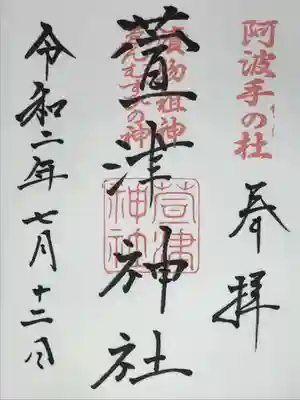 阿波手の杜
奉拝
漬物祖神
むすびの神
萱津神社
萱津
神社
令和二年七月十二日